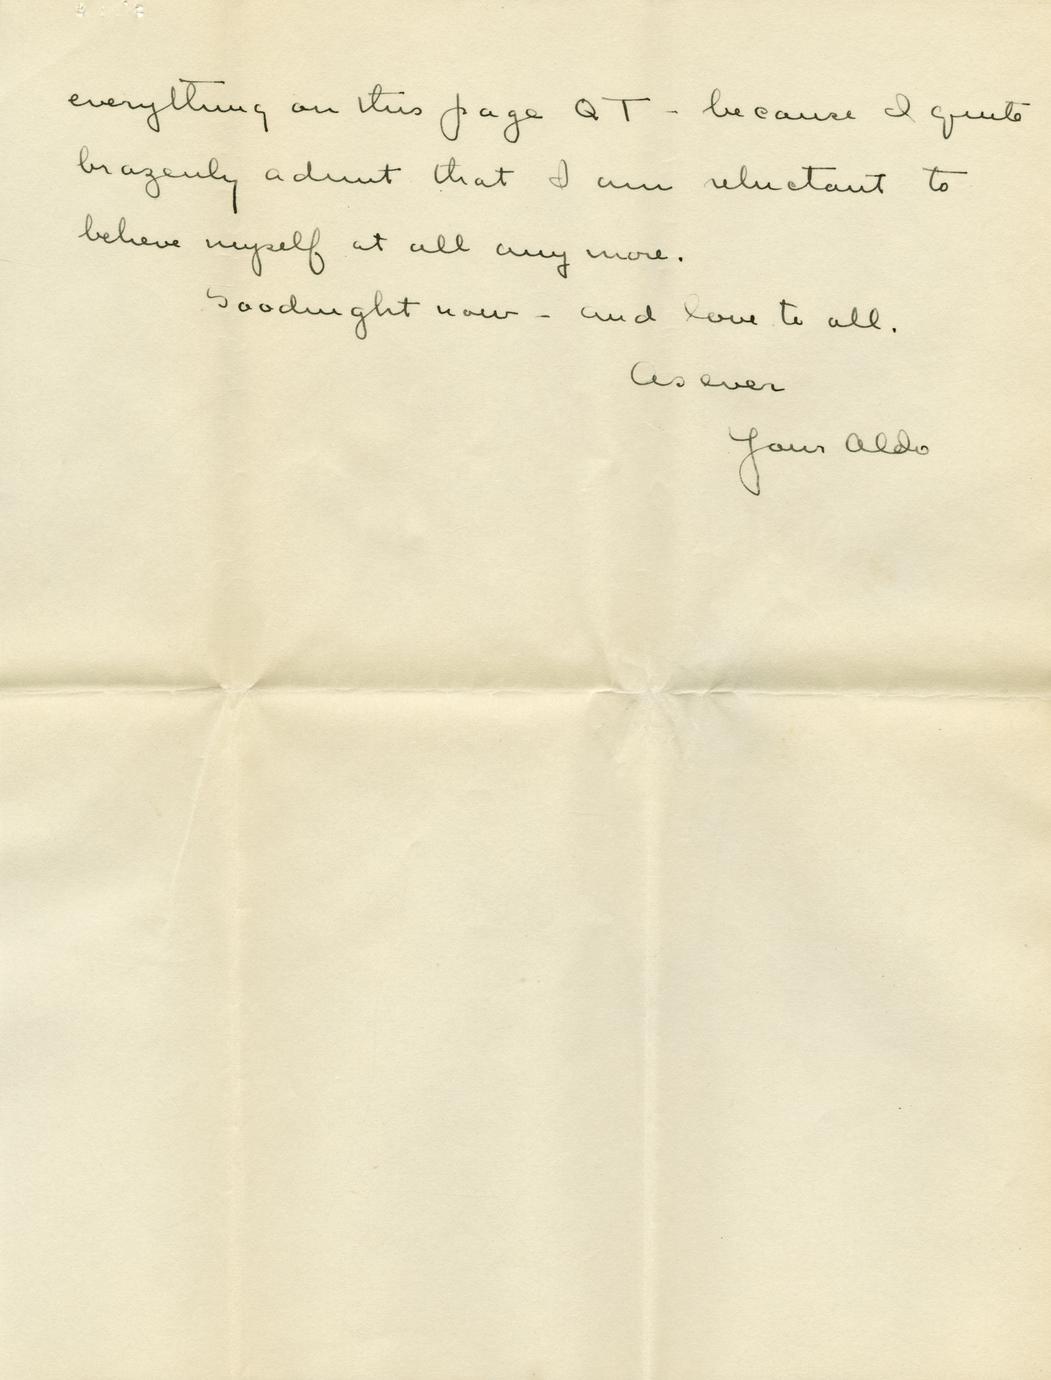 everything on this page QT - because I quite
brazenly admit that I am reluctant to
believe myself at all any more.
Goodnight now - and love to all.
As ever
Your Aldo